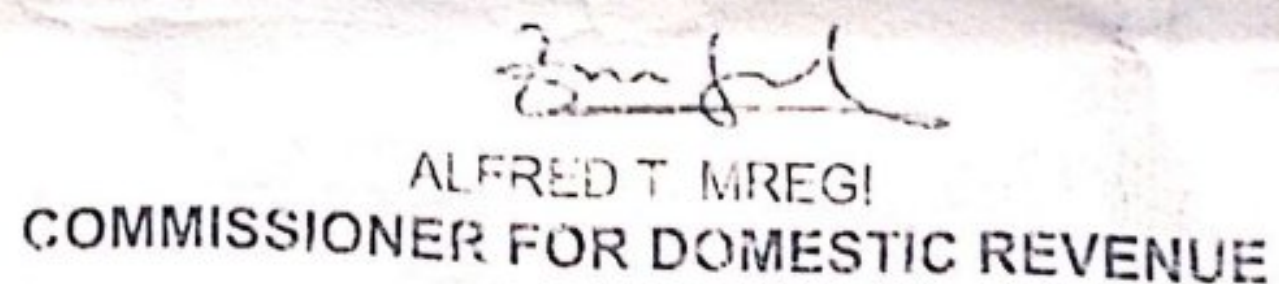 ALFRED T MREGI
COMMISSIONER FOR DOMESTIC REVENUE